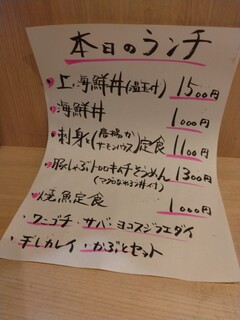 本日のランチ
上海鮮丼(温玉付) 1500円
海鮮丼 1000円
刺身と(唐揚か
チーズハウス)定食 1100円
豚しゃぶトロロキムチそうめん 1300円
(マグロたたき丼付)
焼魚定食 1000円
・ワニゴチ・サバ・ヨコスジフエダイ
・干しカレイ・かぶとセット